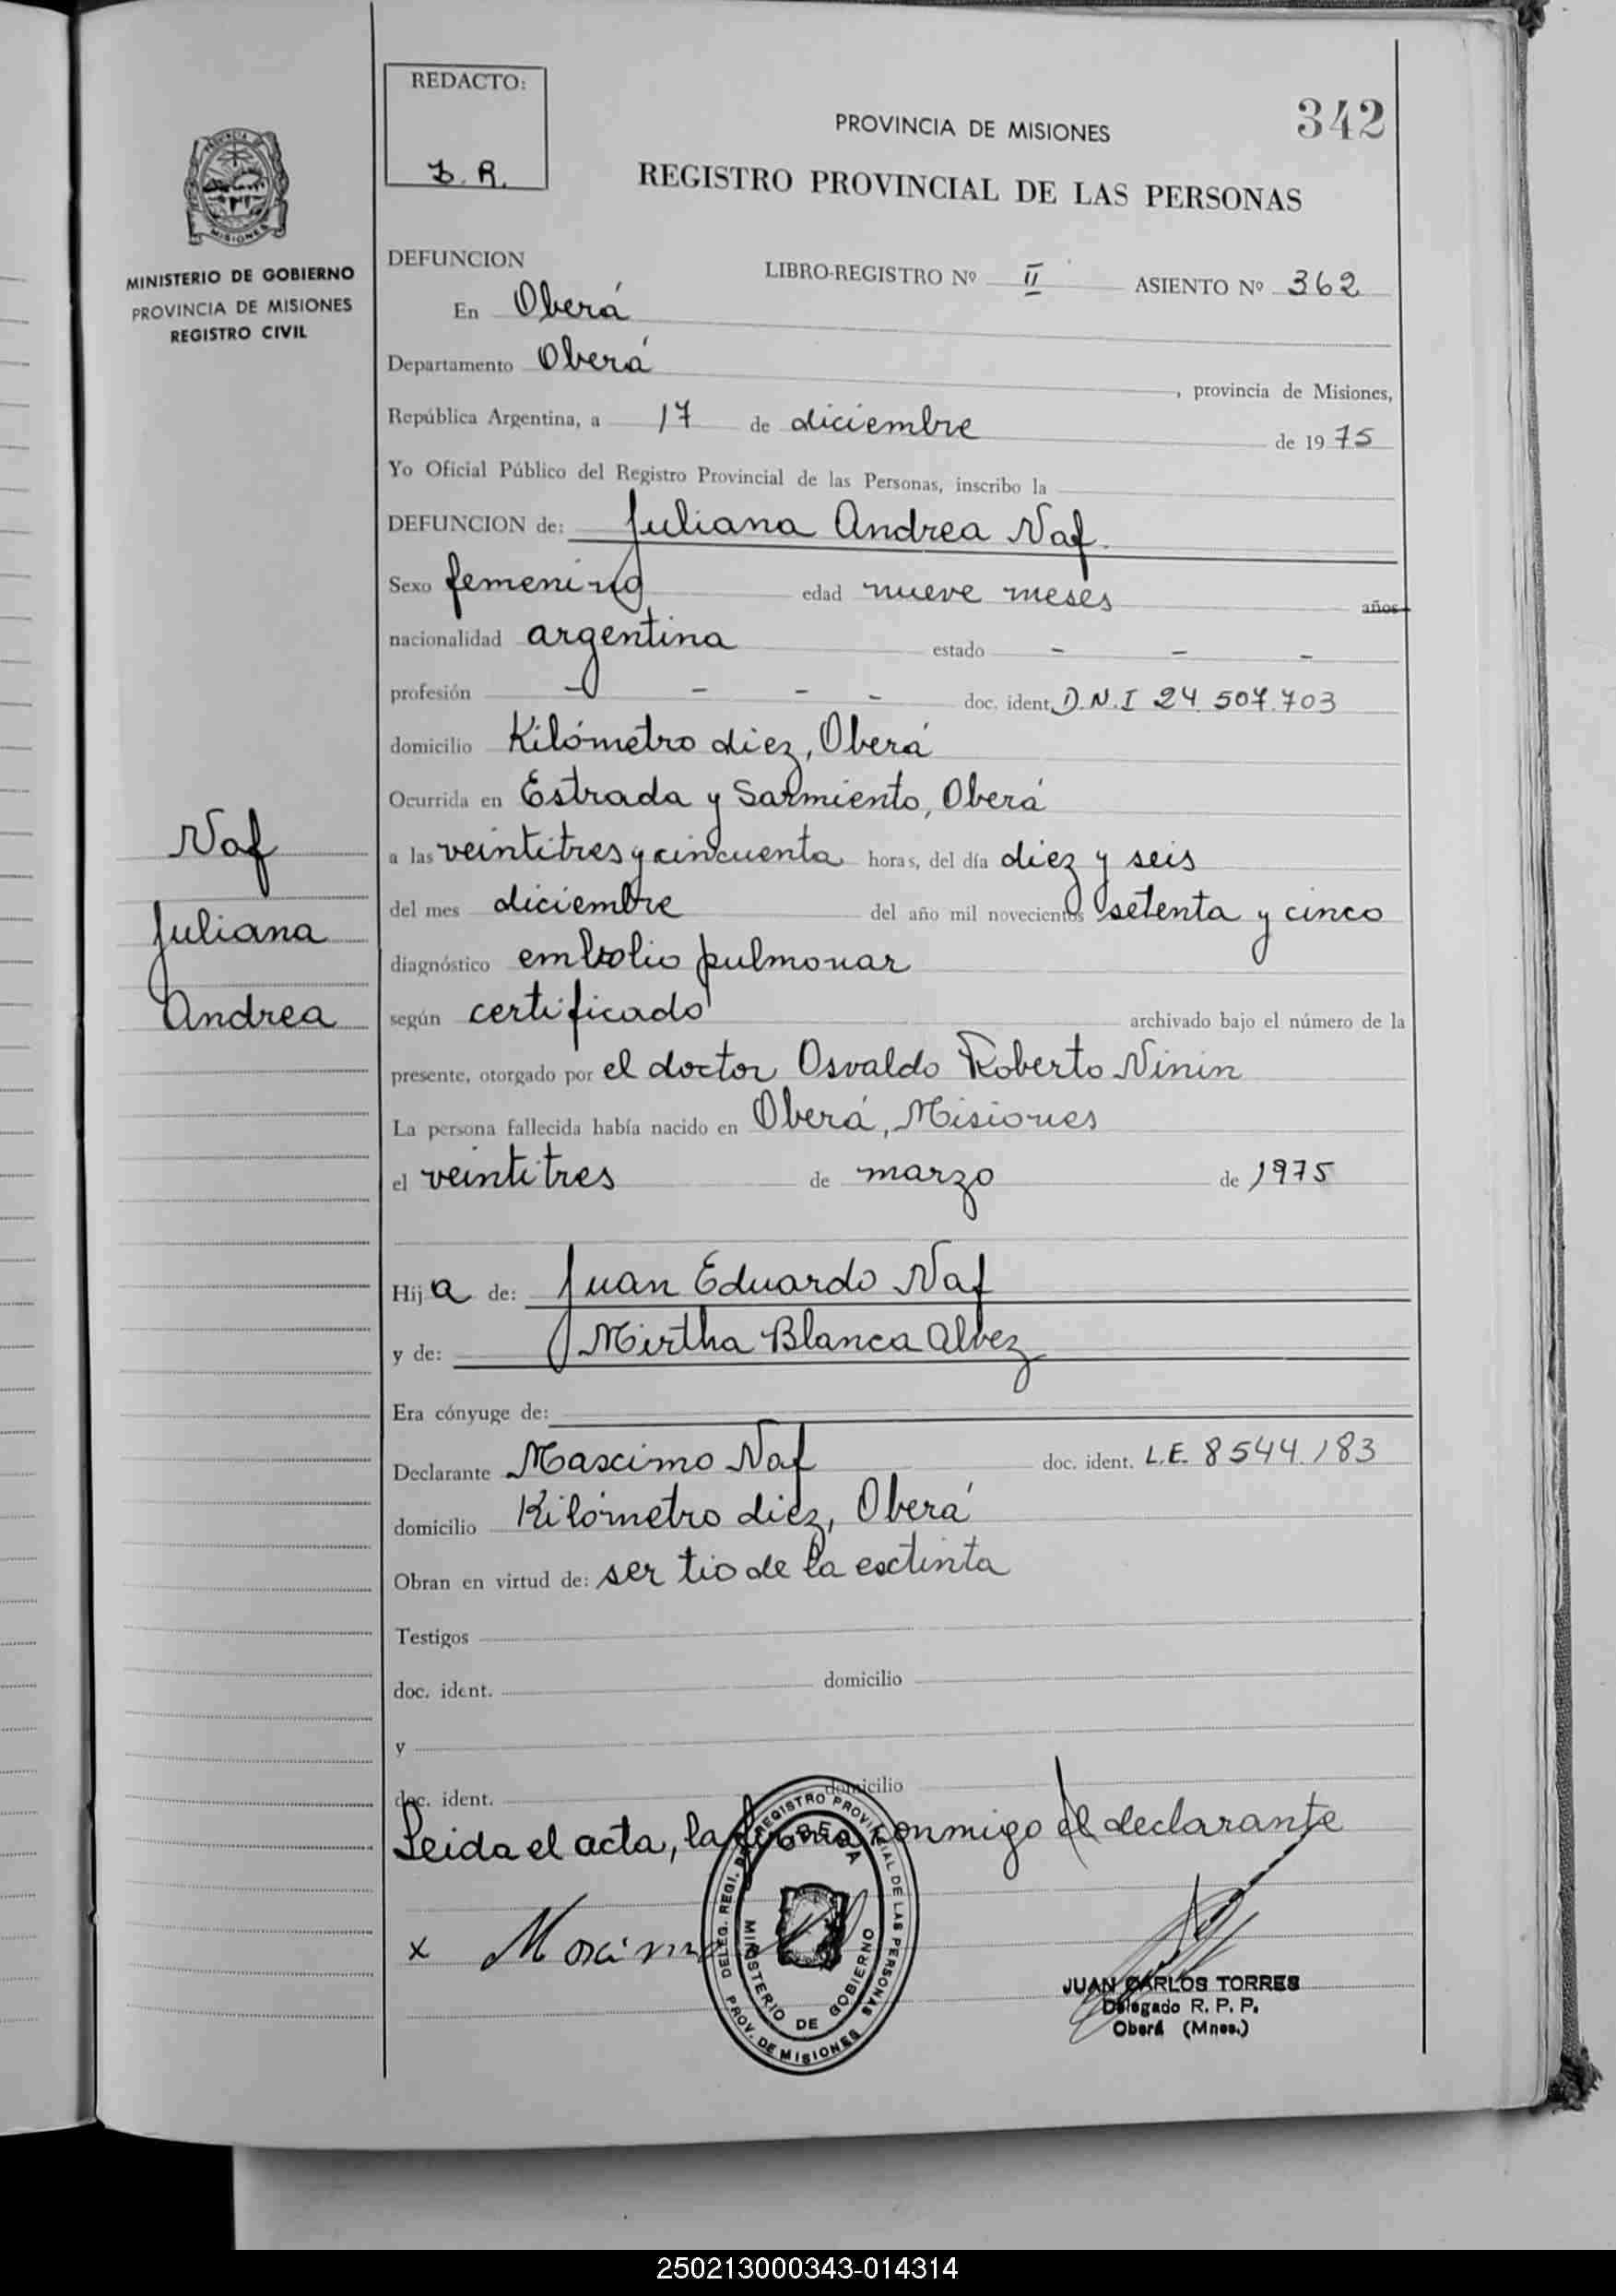 REDACTO:
PROVINCIA DE MISIONES
342
REGISTRO PROVINCIAL DE LAS PERSONAS
PROVINCIA DE
MISIONES
MINISTERIO DE GOBIERNO
PROVINCIA DE MISIONES
REGISTRO CIVIL
DEFUNCION LIBRO-REGISTRO Nº II ASIENTO Nº 362
En Oberá
Departamento Oberá, provincia de Misiones,
República Argentina, a 17 de diciembre de 1975
Yo Oficial Público del Registro Provincial de las Personas, inscribo la
DEFUNCION de: Juliana Andrea Naf.
Sexo femenino edad nueve meses años
nacionalidad argentina estado - - -
profesión - - - - doc. ident. D.N.I 24.507.703
domicilio Kilómetro diez, Oberá
Ocurrida en Estrada y Sarmiento, Oberá
a las veintitres y cincuenta horas, del día diez y seis
del mes diciembre del año mil novecientos setenta y cinco
diagnóstico embolio pulmonar
según certificado archivado bajo el número de la
presente, otorgado por el doctor Osvaldo Roberto Ninin
La persona fallecida había nacido en Oberá, Misiones
el veintitres de marzo de 1975
Naf
Juliana
Andrea
Hija de: Juan Eduardo Naf
y de: Mirtha Blanca Alvez
Era cónyuge de:
Declarante Mascimo Naf doc. ident. L.E. 8544.183
domicilio Kilómetro diez, Oberá
Obran en virtud de: ser tio de la esctinta
Testigos
doc. ident. domicilio
y
doc. ident. domicilio
Leida el acta, la firma conmigo el declarante
x
DELEG. REGI. DEL REGISTRO PROVINCIAL DE LAS PERSONAS
PROV. DE MISIONES
OBERA
MINISTERIO DE GOBIERNO
JUAN CARLOS TORRES
Delegado R. P. P.
Oberá (Mnes.)
250213000343-014314